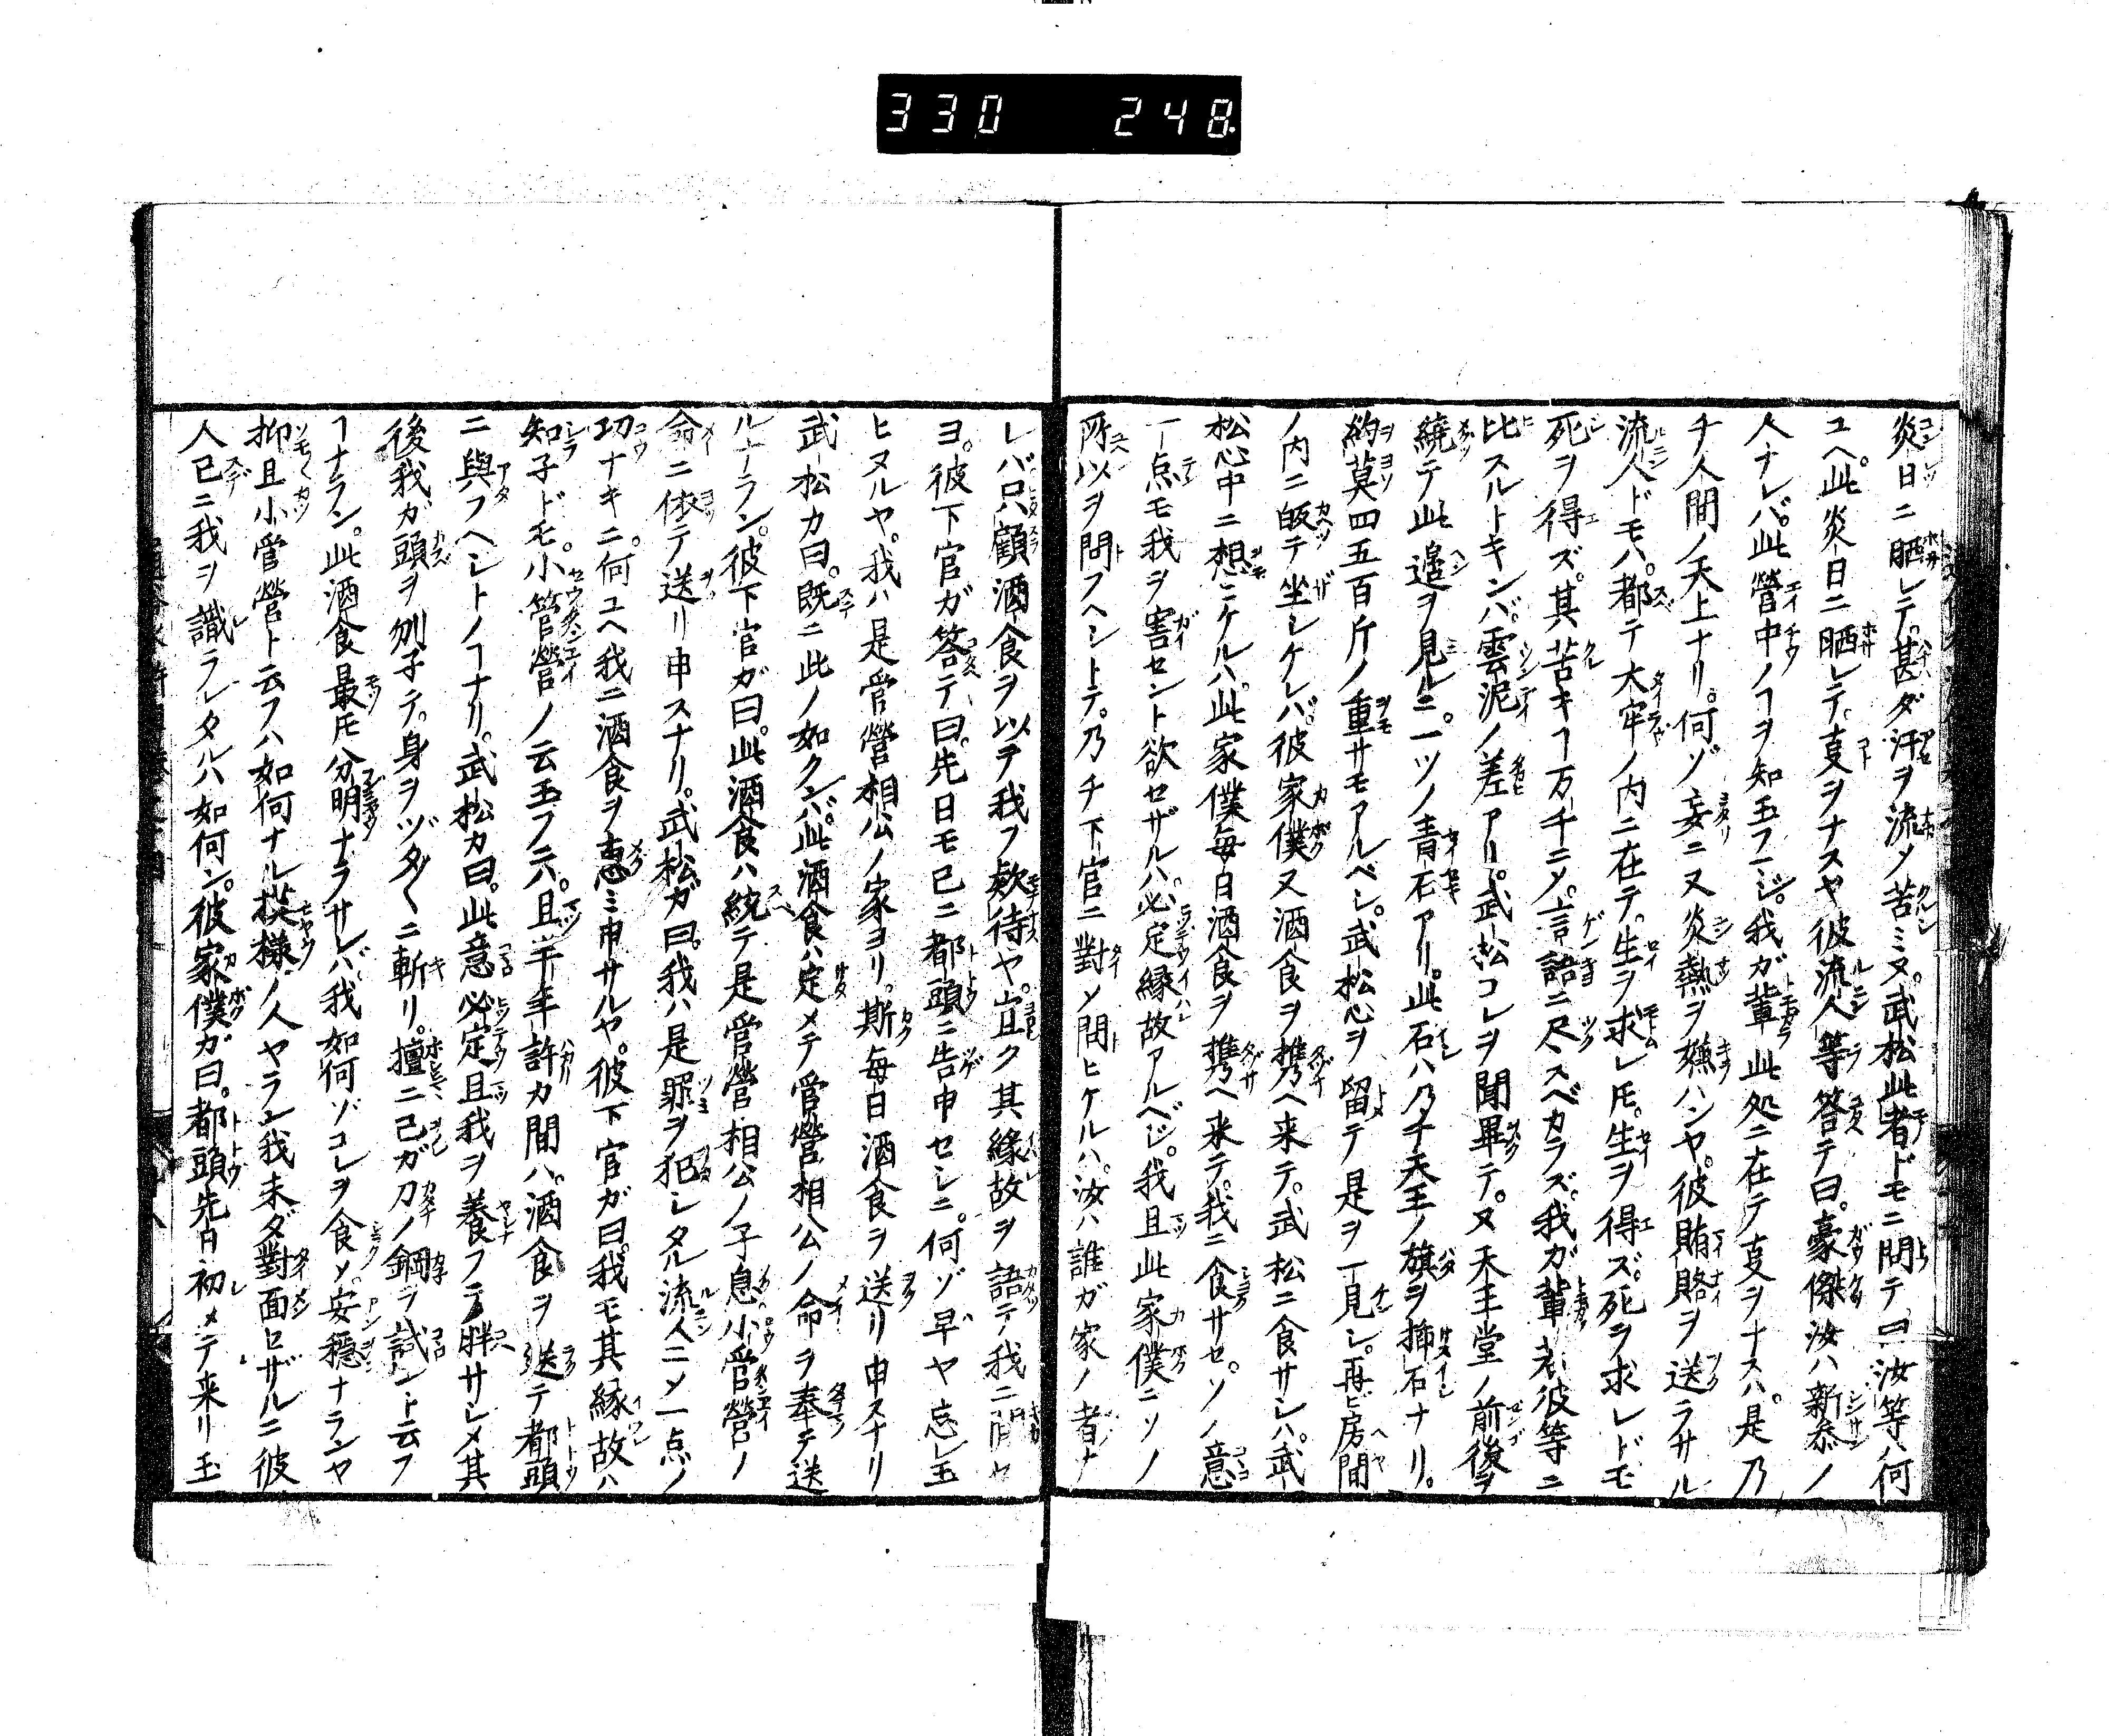 330 248
炎日ニ晒レテ。甚ダ汗ヲ流〆苦ミヌ。武松此者ドモニ問テ曰汝等ハ何
ユヘ。此炎日ニ晒レテ。叓ヲナスヤ彼流人等答テ曰。豪傑汝ハ新叅ノ
人ナレバ。此營中ノヿヲ知玉フマジ。我ガ輩此処ニ在テ叓ヲナスハ。是乃
チ人間ノ天上ナリ。何ゾ妄ニ又炎熱ヲ嫌ハンヤ。彼賄賂ヲ送ラサル
流人ドモハ。都テ大牢ノ内ニ在テ。生ヲ求レ𪜈。生ヲ得ズ。死ヲ求レドモ
死ヲ得ズ。其苦キヿ万千ニ〆。言語ニ尽スベカラズ。我ガ輩ヲ彼等ニ
比スルトキンバ。雲泥ノ差アリ。武松コレヲ聞畢テ。又天王堂ノ前後ヲ
繞テ此邉ヲ見ルニ。一ツノ青石アリ。此石ハ乃チ天王ノ旗ヲ揷石ナリ。
約莫四五百斤ノ重サモアルベシ。武松心ヲ留テ是ヲ一見シ。再ヒ房間
ノ内ニ皈テ坐シケレバ。彼家僕又酒食ヲ携ヘ来テ。武松ニ食サシム。武
松心中ニ想ニケルハ。此家僕毎日酒食ヲ携ヘ来テ。我ニ食サセ。ソノ意
一点モ我ヲ害セント欲セザルハ。必定縁故アルベシ。我且此家僕ニソノ
所以ヲ問フヘシトテ。乃チ下官ニ對〆問ヒケルハ。汝ハ誰ガ家ノ者ナ
レバ只顧酒食ヲ以テ我ヲ欵待ヤ。宜ク其縁故ヲ語テ我ニ聞セ
ヨ。彼下官ガ答テ曰。先日モ已ニ都頭ニ告申セシニ。何ゾ早ヤ忘レ玉
ヒヌルヤ。我ハ是管營相公ノ家ヨリ。斯毎日酒食ヲ送リ申スナリ
武松カ曰。既ニ此ノ如クンバ。此酒食ハ定メテ管營相公ノ命ヲ奉テ送
ルナラン。彼下官ガ曰。此酒食ハ統テ是管營相公ノ子息小管營ノ
命ニ依テ送リ申スナリ。武松ガ曰。我ハ是罪ヲ犯シタル流人ニ〆一点ノ
功ナキニ。何ユヘ我ニ酒食ヲ恵ミ申サルヤ。彼下官ガ曰。我モ其縁故ハ
知子ドモ。小管營ノ云玉フニハ。且半年許カ間ハ。酒食ヲ送テ都頭
ニ與フヘシトノヿナリ。武松カ曰。此意必定且我ヲ養フテ胖サシメ其
後我ガ頭ヲ刎子テ。身ヲヅダ〱ニ斬リ。擅ニ己ガ刀ノ鋼ヲ試ント云フ
ヿナラン。此酒食最𪜈分明ナラサレバ我如何ゾコレヲ食〆。安穩ナランヤ
抑且小管營ト云フハ如何ナル摸様ノ人ヤラン我未ダ對面セザルニ彼
人已ニ我ヲ識ラレタルハ如何ン。彼家僕ガ曰。都頭先日初メテ来リ玉